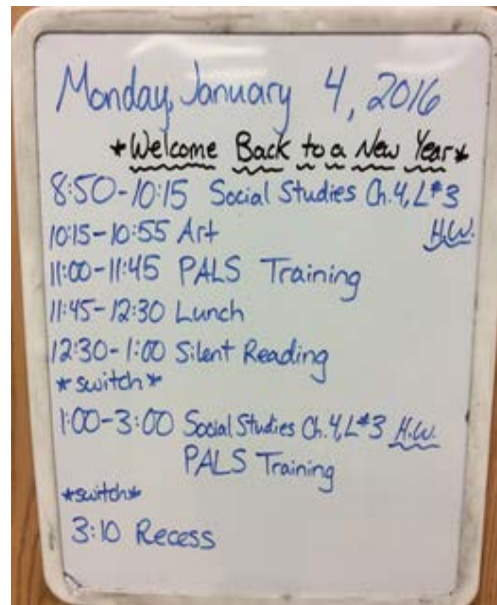 Monday, January 4, 2016
*Welcome Back to a New Year*
8:50-10:15 Social Studies Ch.4, L#3
H.W.
10:15-10:55 Art
11:00-11:45 PALS Training
11:45-12:30 Lunch
12:30-1:00 Silent Reading
*switch*
1:00-3:00 Social Studies Ch.4, L#3 H.W.
PALS Training
*switch*
3:10 Recess